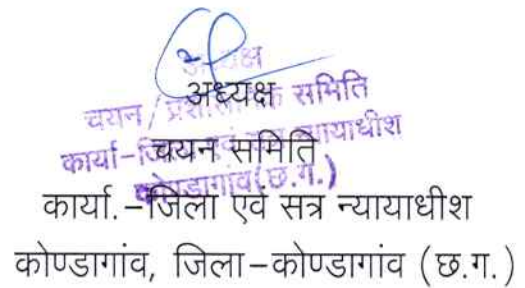 अध्यक्ष
चयन / प्रशासनिक समिति
कार्या-जिला एवं सत्र न्यायाधीश
कोण्डागांव(छ.ग.)
अध्यक्ष
चयन समिति
कार्या.–जिला एवं सत्र न्यायाधीश
कोण्डागांव, जिला–कोण्डागांव (छ.ग.)